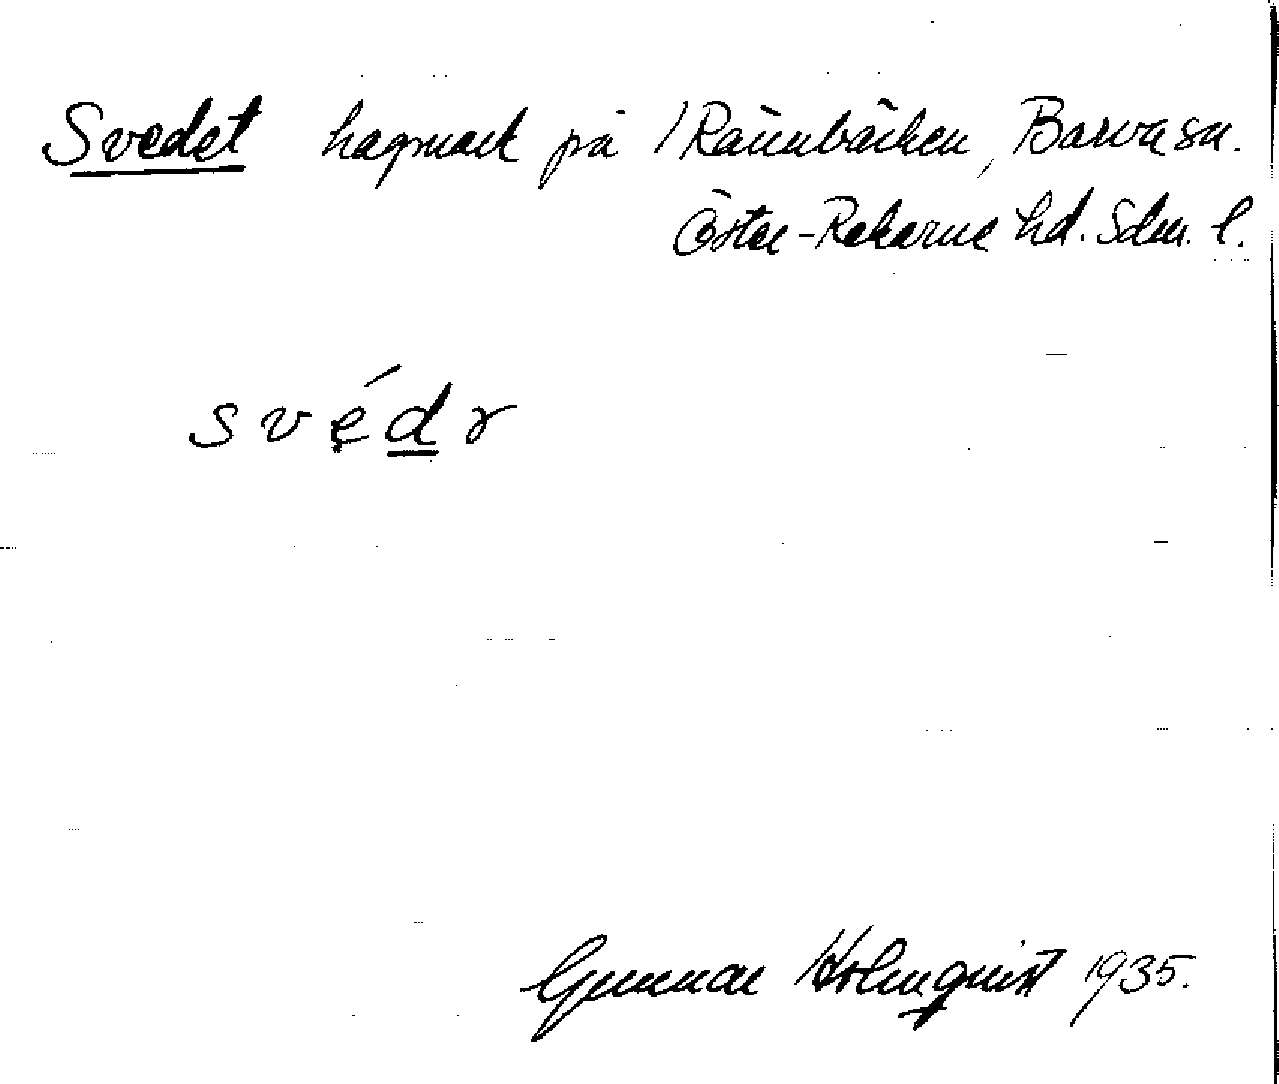 Svedet hagmark på Rännbäcken, Barva sn.
Öster-Rekarne hd. Sdm. l.
svẹ́d̲r
Gunnar Holmquist 1935.